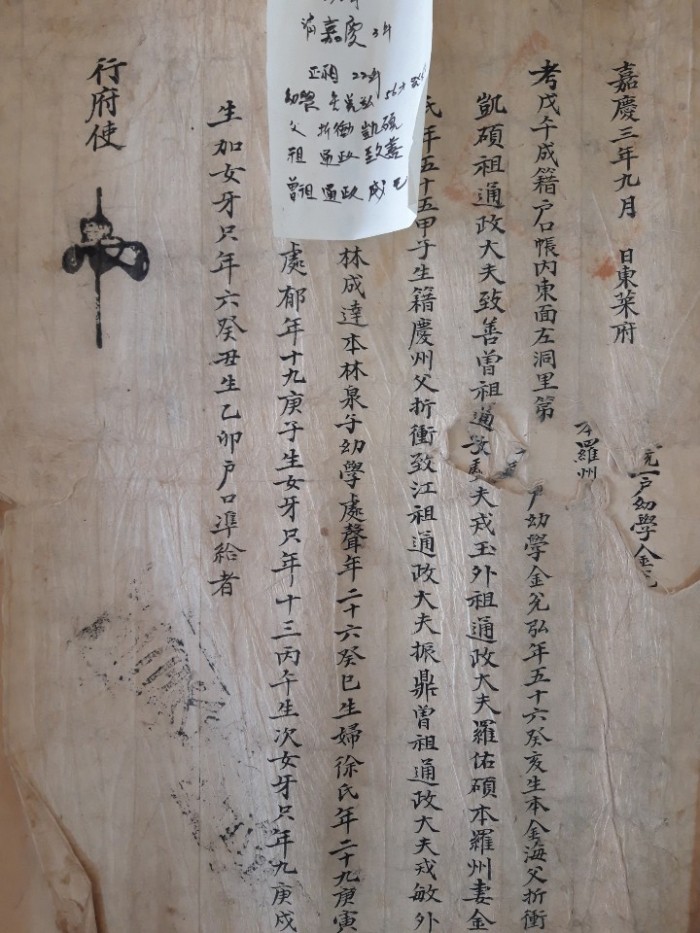 嘉慶三年九月 日東萊府
考戊午成籍戶口帳內東面左洞里第
戶幼學金兌弘年五十六癸亥生本金海父折衝
凱碩祖通政大夫致善曾祖通政大夫戎玉外祖通政大夫羅佑碩本羅州妻金
氏年五十五甲子生籍慶州父折衝致江祖通政大夫振鼎曾祖通政大夫戎敏外
林成達本林泉子幼學處聲年二十六癸巳生婦徐氏年二十九庚寅
處郁年十九庚子生女牙只年十三丙午生次女牙只年九庚戌
生加女牙只年六癸丑生乙卯戶口準給者
行府使
一戶幼學金
本羅州
嘉慶 3年
正祖 22年
幼學 56才
父 折衝 凱碩
祖 通政 致善
曾祖 通政 戎玉